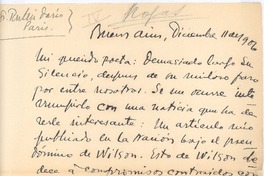 Sr. Rubén Darío
París.
Buenos Aires, Diciembre 11 de 1906
Mi querido poeta: Demasiado largo su
silencio, después de su meteoro paso
por entre nosotros. Se me ocurre inte-
rrumpirlo con una noticia que ha de
serle interesante. Un artículo mío
publicado en La Nación bajo el pseu-
dónimo de Wilson. Esto de Wilson obe-
dece a compromisos contraídos con